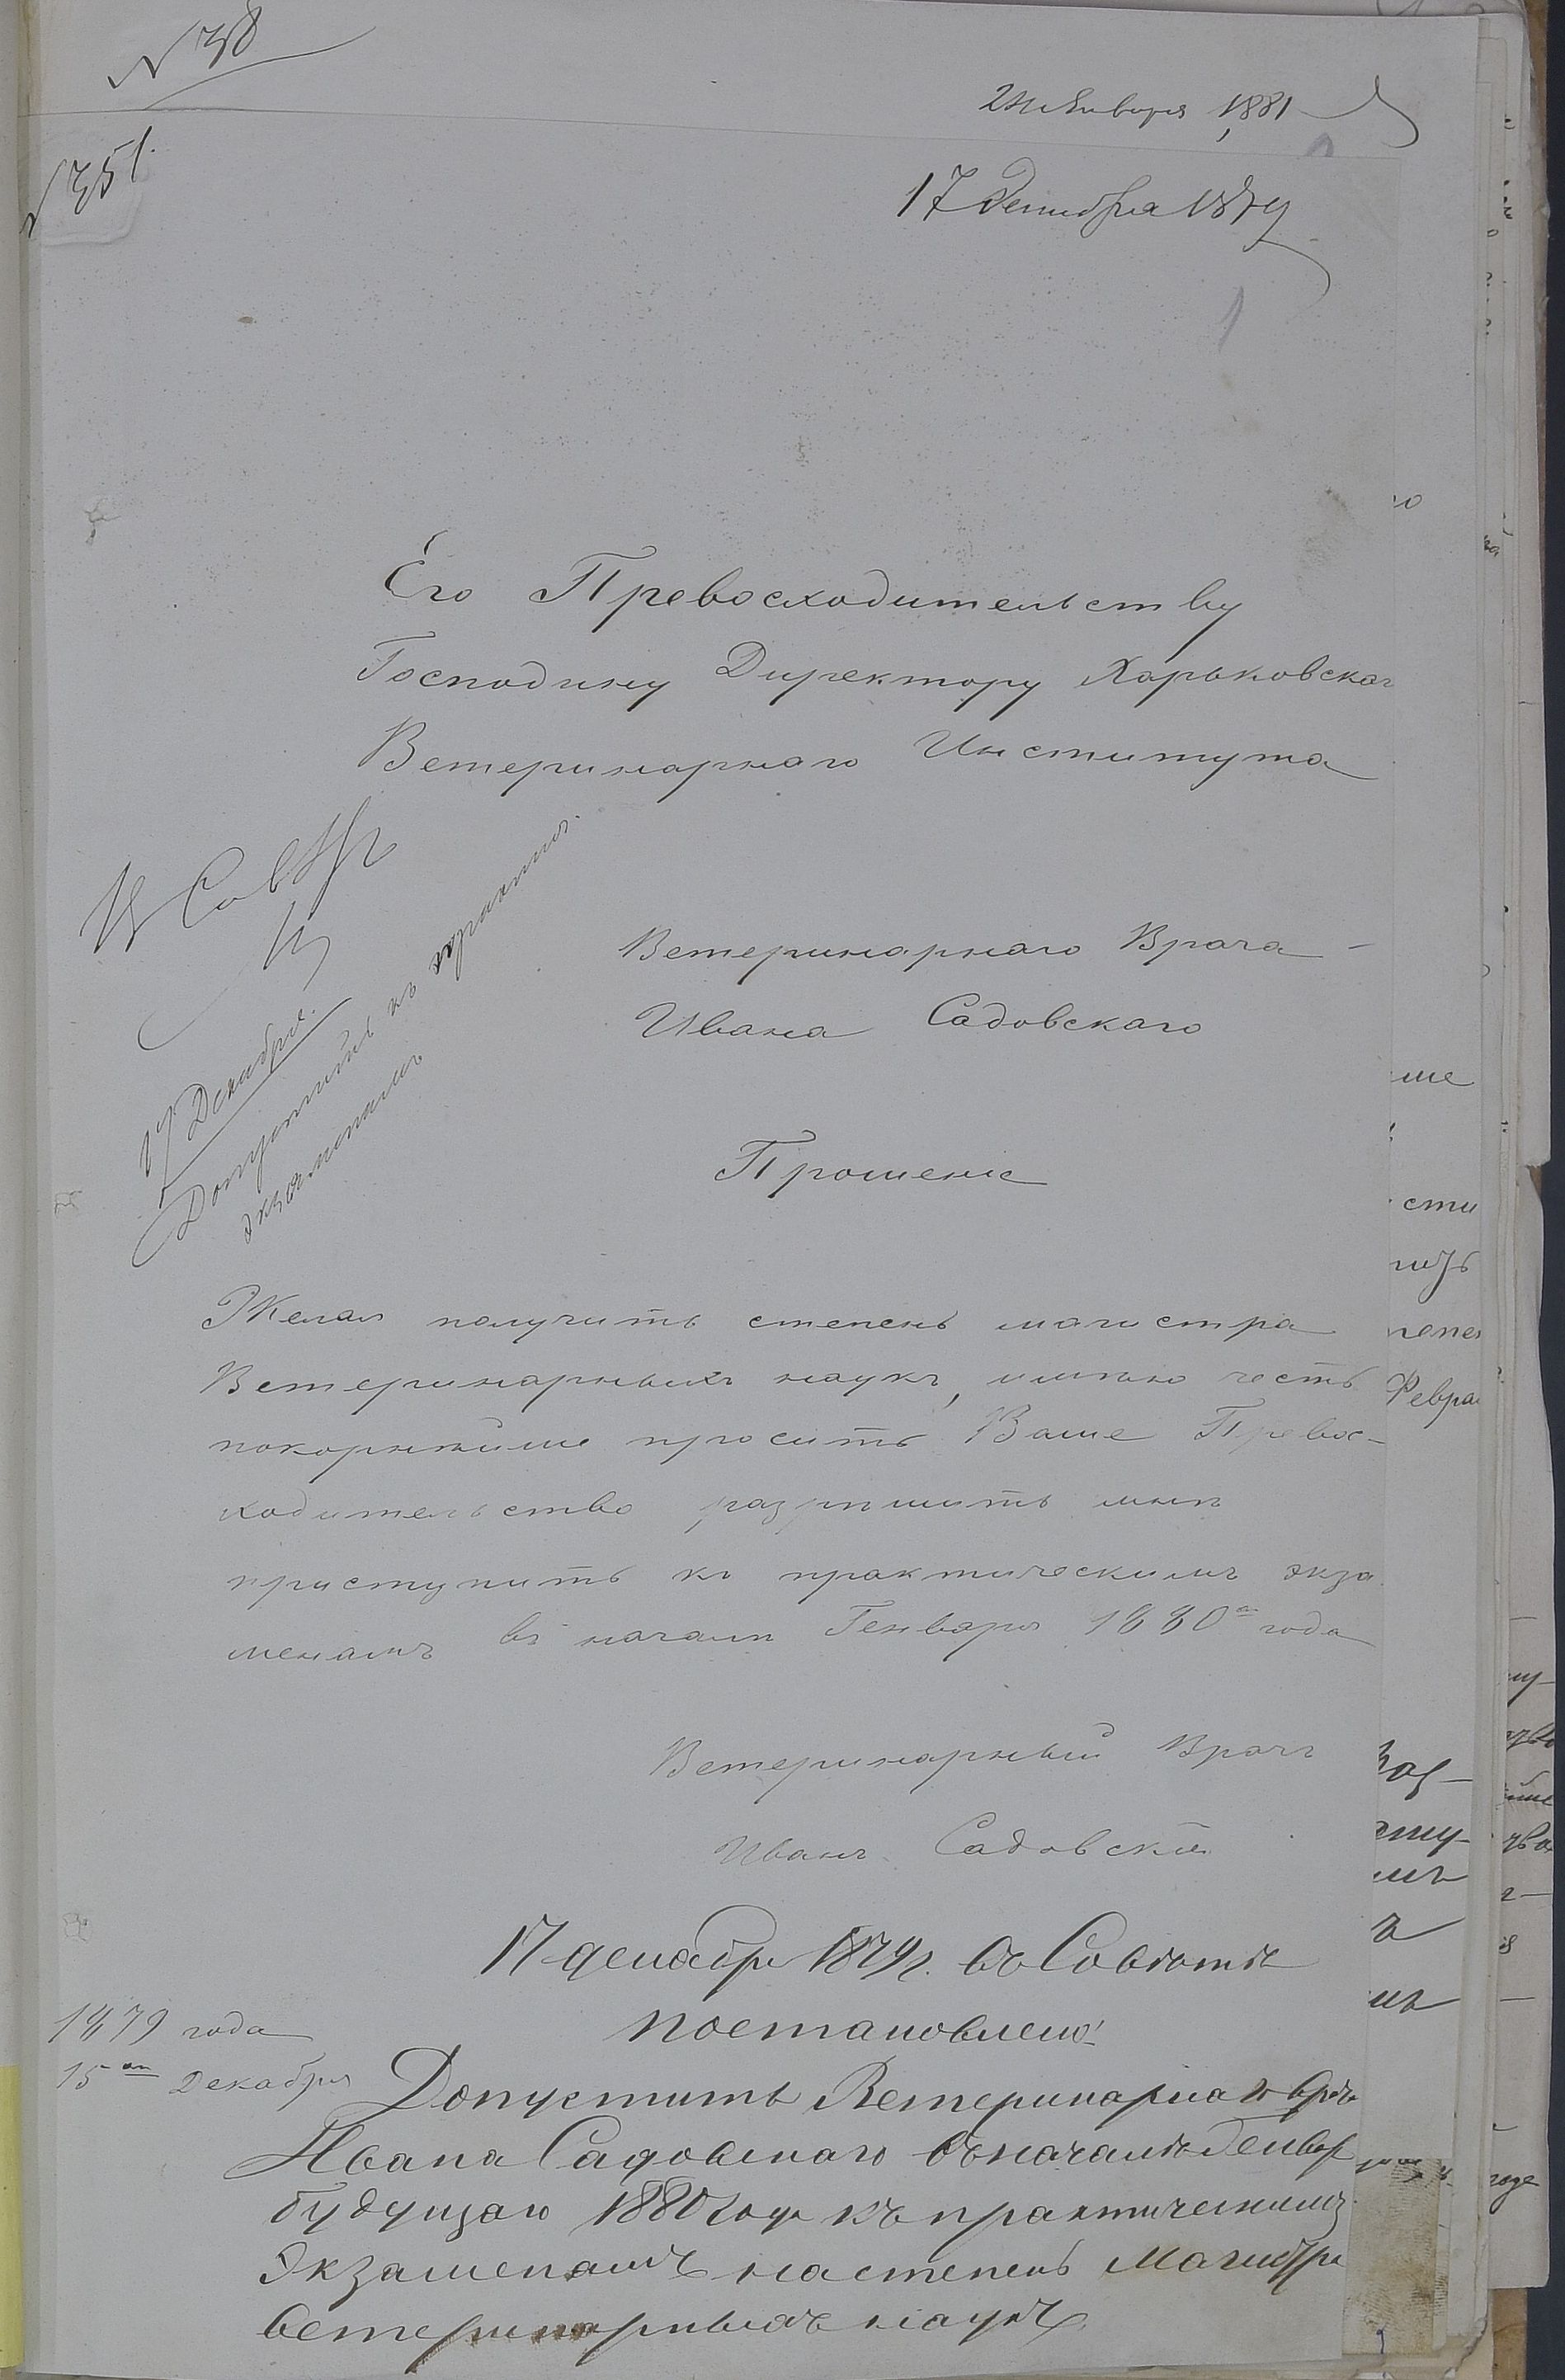 N 38
2 Января 1881
N 351.
17 Декабря 1879
1
Его Превосходительству
Господину Директору Харьковскаг
Ветеринарнаго Института
Въ Совѣтъ
Ветеринарнаго Врача
Ивана Садовскаго
17 Декабря.
Допустить къ
экзаменамъ
Прошеніе
Желая получить степень магистра
Ветеринарныхъ наукъ, имѣю честь
покорнѣйше просить Ваше Превос-
ходительство разрѣшить мнѣ
приступить къ практическимъ экза
менамъ въ началѣ Генваря 1880 года
Ветеринарный Врачъ
Иванъ Садовскій
17 декабря 1879 г. въ Совѣтѣ
постановлено:
1879 года
15 Декабря
Допустить Ветеринарнаго врача
Ивана Садовскаго въ началѣ Генвар
будущаго 1880 года къ практическимъ
экзаменамъ на степень Магистра
ветеринарныхъ наукъ